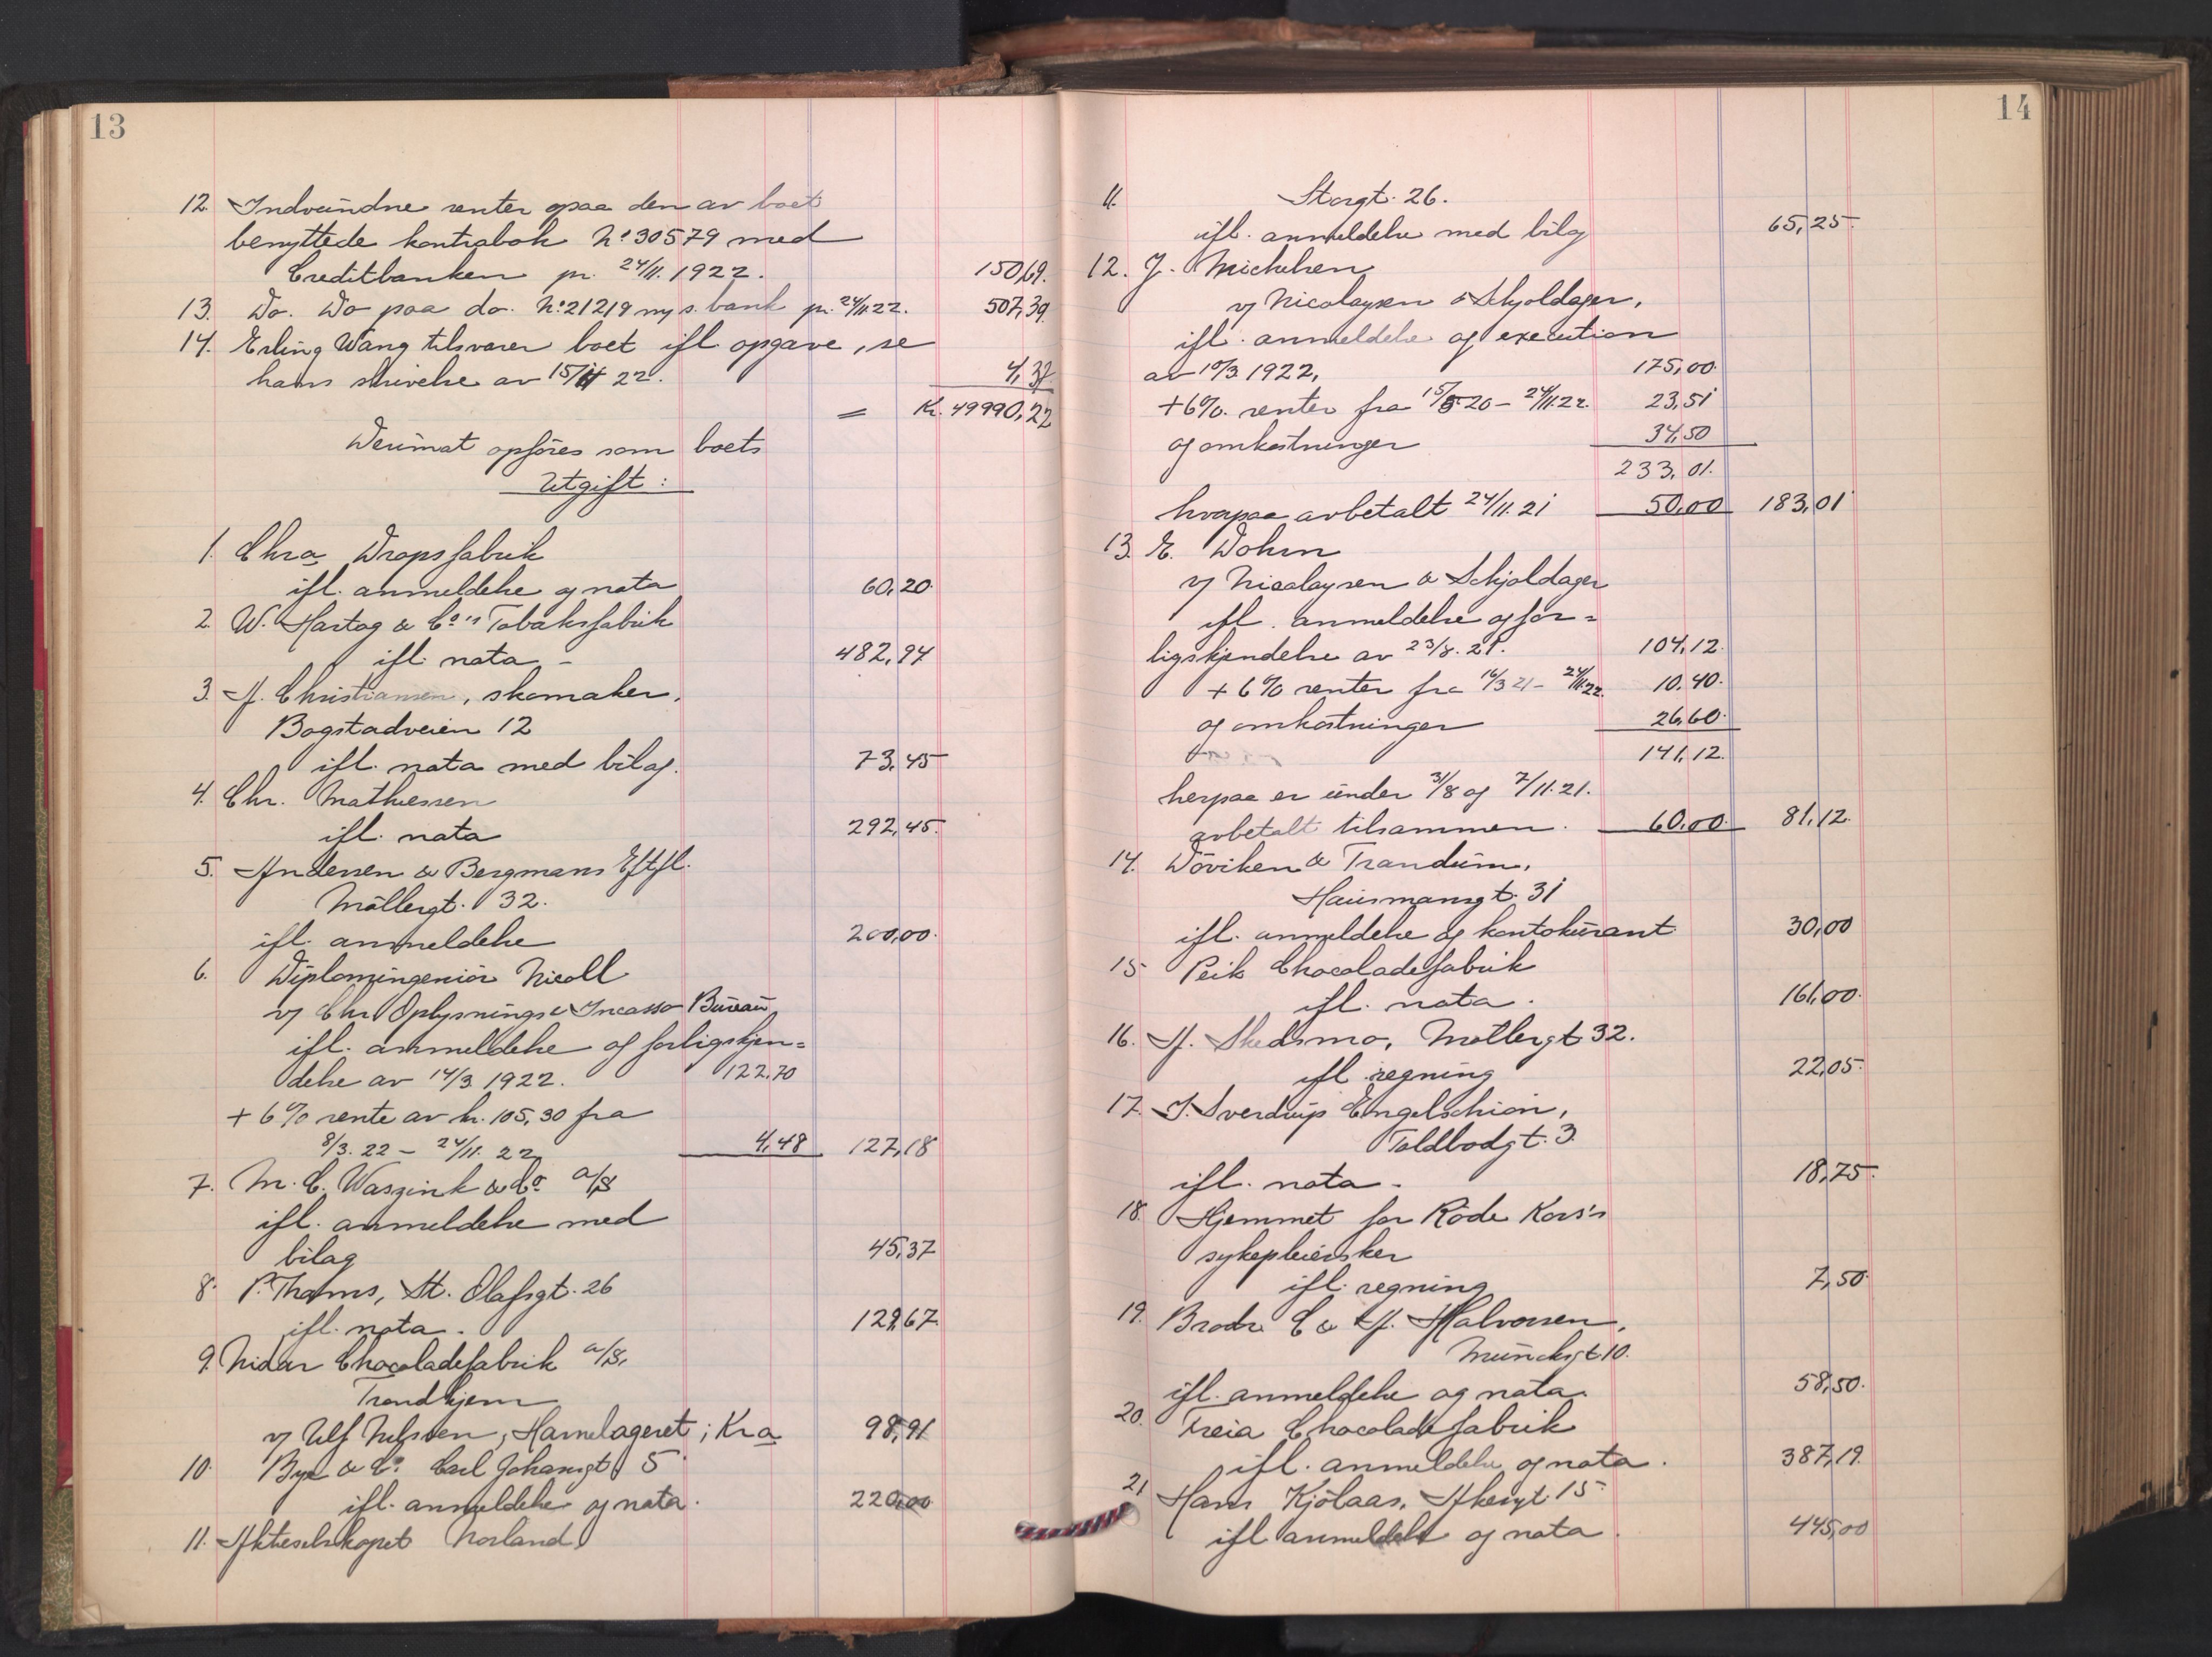 13
12. Indvundne renter paa den av boet
benyttede kontrabok No 30579 med
Creditbanken pr. 24/11. 1922. 150,69.
13. Do. Do paa do. No 21219 ny s. bank pr. 24/11 22. 507,39.
14. Erling Wang tilsvarer boet ifl opgave, se
hans skrivelse av 15/11 22. 4,37
= Kr. 49990,22
Derimot opføres som boets
Utgift:
1. Chra Dropsfabrik
ifl. anmeldelse og nota 60,20.
2. W. Hartog & Co's Tobaksfabrik
ifl. nota - 482,94
3. A. Christiansen, skomaker,
Bogstadveien 12
ifl. nota med bilag. 73,45
4. Chr. Mathiessen
ifl. nota 292,45.
5. Andersen & Bergmans Eftfl.
Møllergt. 32.
ifl. anmeldelse 200,00.
6. Diplomingeniør Nicoll
v/ Chr Oplysnings & Incasso Bureau
ifl. anmeldelse og forligskjen=
delse av 14/3 1922. 122,70
+ 6% rente av kr. 105,30 fra
8/3. 22 - 24/11. 22 4,48 127,18
7. M. C. Waszink & Co. a/s
ifl. anmeldelse med
bilag 45,37
8. P. Thams, St. Olafsgt. 26
ifl. nota. 129,67.
9. Nidar Chocoladefabrik a/s,
Trondhjem
v/ Ulf Nilssen, Havnelageret, Kra 98,91
10. Bye & Co. Carl Johansgt. 5
ifl. anmeldelse og nota. 220,00
11. Aktieselskapet Norland,
14
11. Storgt. 26.
ifl. anmeldelse med bilag 65,25.
12. J. Michelsen
v/ Nicolaysen & Schjoldager,
ifl. anmeldelse og execution
av 10/3 1922, 175,00.
+ 6% renter fra 15/8 20 - 24/11. 22. 23,51
og omkostninger 34,50
233,01.
hvorpaa avbetalt 24/11. 21 50,00 183,01
13. E. Dohrn
v/ Nicolaysen & Schjoldager
ifl. anmeldelse og for=
ligskjendelse av 23/8. 21. 104,12.
+ 6% renter fra 16/3 21 - 24/11. 22. 10.40.
og omkostninger 26,60.
141,12.
herpaa er under 31/8 og 7/11. 21.
avbetalt tilsammen. 60,00. 81,12.
14. Døviken & Trandum,
Hausmansgt. 31
ifl. anmeldelse og kontokurant 30,00
15 Peik Chocoladefabrik
ifl. nota. 161,00.
16. A. Skedsmo, Møllergt 32.
ifl. regning 22,05.
17. J. Sverdrup Engelschiøn,
Toldbodgt. 3.
ifl. nota - 18,75.
18. Hjemmet for Røde Kors's
sykepleiersker
ifl. regning 7,50.
19. Brødr. C & A. Halvorsen,
Munchsgt 10.
ifl. anmeldelse og nota. 58,50.
20. Freia Chocoladefabrik
ifl. anmeldelse og nota. 387,19.
21 Hans Kjølaas, Akersgt. 15
ifl anmeldelse og nota. 445,00